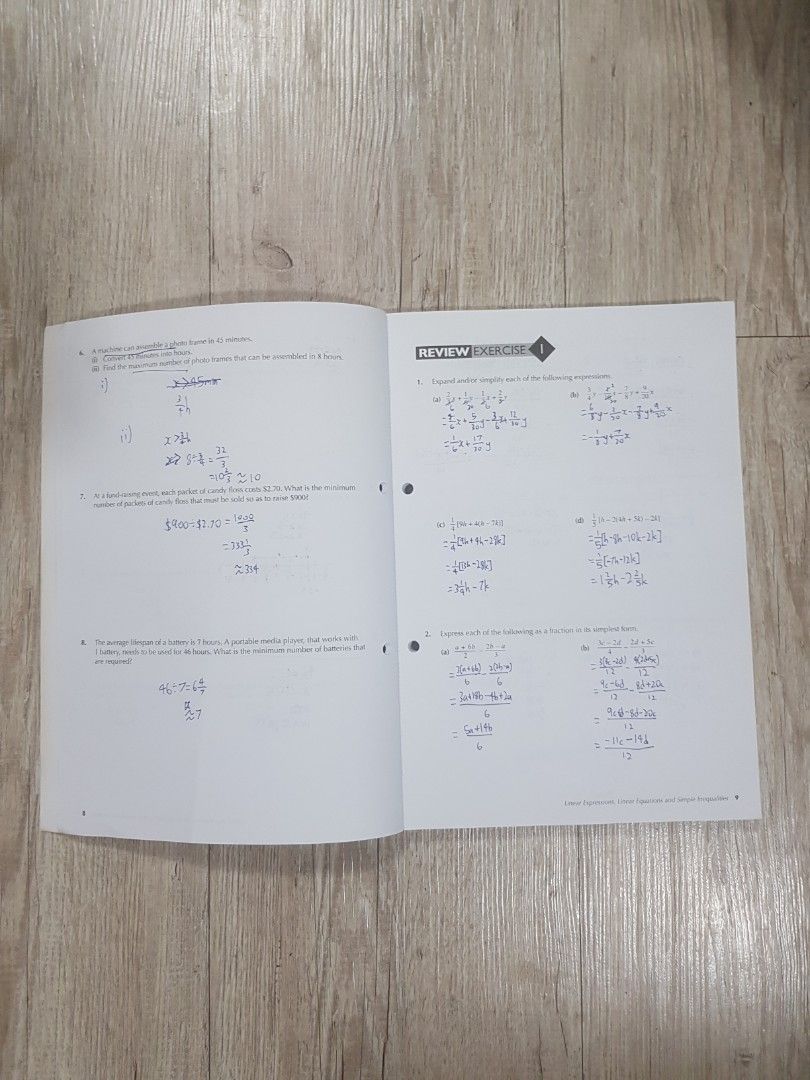 6. A machine can assemble a photo frame in 45 minutes.
(i) Convert 45 minutes into hours.
(ii) Find the maximum number of photo frames that can be assembled in 8 hours.
i)
3/4 h
ii)
x > 3/4 h
8 ÷ 3/4 = 32/3
= 10 2/3 ≈ 10
7. At a fund-raising event, each packet of candy floss costs $2.70. What is the minimum
number of packets of candy floss that must be sold so as to raise $900?
$900 ÷ $2.70 = 1000/3
= 333 1/3
≈ 334
8. The average lifespan of a battery is 7 hours. A portable media player, that works with
1 battery, needs to be used for 46 hours. What is the minimum number of batteries that
are required?
46 ÷ 7 = 6 4/7
≈ 7
8
REVIEW EXERCISE 1
1. Expand and/or simplify each of the following expressions.
(a)
= 1/6 x + 17/30 y
(b)
= - 1/8 y + 7/20 x
(c) 1/4 [9h + 4(h - 7k)]
= 1/4 [9h + 4h - 28k]
= 1/4 [13h - 28k]
= 3 1/4 h - 7k
(d) 1/5 [h - 2(4h + 5k) - 2k]
= 1/5 [h - 8h - 10k - 2k]
= 1/5 [-7h - 12k]
= 1 2/5 h - 2 2/5 k
2. Express each of the following as a fraction in its simplest form.
(a) a + 6b / 2 - 2b - a / 3
= 3(a+6b) / 6 - 2(2b-a) / 6
= 3a+18b-4b+2a / 6
= 5a+14b / 6
(b) 3c - 2d / 4 - 2d + 5c / 3
= 3(3c-2d) / 12 - 4(2d+5c) / 12
= 9c-6d / 12 - 8d+20c / 12
= -11c-14d / 12
Linear Expressions, Linear Equations and Simple Inequalities 9